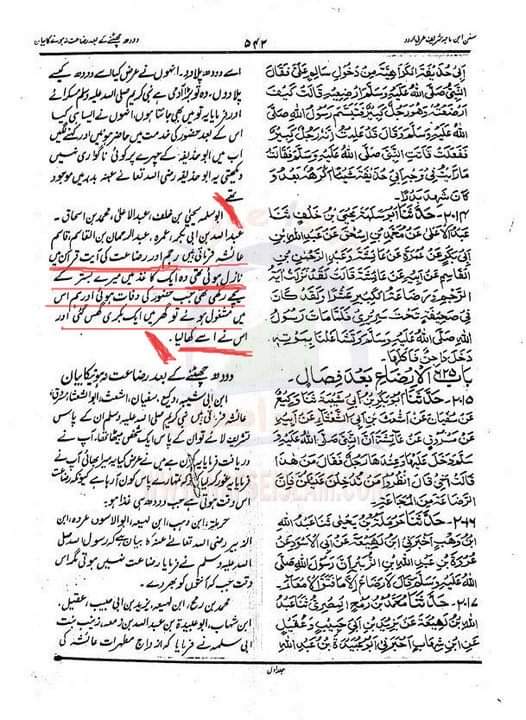 سنن ابن ماجہ شریف عربی اردو
۵۴۲
دودھ چھٹنے کے بعد رضاعت نہ ہونے کا بیان
أَبِي حُذَيْفَةَ الْكَرَاهِيَةَ مِنْ دُخُولِ سَالِمٍ عَلَيَّ فَقَالَ
النَّبِيُّ صَلَّى اللهُ عَلَيْهِ وَسَلَّمَ أَرْضِعِيهِ قَالَتْ كَيْفَ
أُرْضِعُهُ وَهُوَ رَجُلٌ كَبِيرٌ فَتَبَسَّمَ رَسُولُ اللهِ صَلَّى
اللهُ عَلَيْهِ وَسَلَّمَ وَقَالَ قَدْ عَلِمْتُ أَنَّهُ رَجُلٌ كَبِيرٌ
فَفَعَلَتْ فَأَتَتِ النَّبِيَّ صَلَّى اللهُ عَلَيْهِ وَسَلَّمَ فَقَالَتْ
مَا رَأَيْتُ فِي وَجْهِ أَبِي حُذَيْفَةَ شَيْئًا أَكْرَهُهُ بَعْدُ وَ
كَانَ شَهِدَ بَدْرًا۔
۲۰۱۴۔ حَدَّثَنَا أَبُو سَلَمَةَ يَحْيَى بْنُ خَلَفٍ ثَنَا
عَبْدُ الْأَعْلَى عَنْ مُحَمَّدِ بْنِ إِسْحٰقَ عَنْ عَبْدِ اللهِ بْنِ
أَبِي بَكْرٍ عَنْ عَمْرَةَ عَنْ عَائِشَةَ وَعَنْ عَبْدِ الرَّحْمٰنِ بْنِ
الْقَاسِمِ عَنْ أَبِيهِ عَنْ عَائِشَةَ قَالَتْ لَقَدْ نَزَلَتْ آيَةُ
الرَّجْمِ وَرَضَاعَةُ الْكَبِيرِ عَشْرًا وَلَقَدْ كَانَ
فِي صَحِيفَةٍ تَحْتَ سَرِيرِي فَلَمَّا مَاتَ رَسُولُ
اللهِ صَلَّى اللهُ عَلَيْهِ وَسَلَّمَ وَتَشَاغَلْنَا بِمَوْتِهِ
دَخَلَ دَاجِنٌ فَأَكَلَهَا۔
باب ۶۲۵ لَا رِضَاعَ بَعْدَ فِصَالٍ۔
۲۰۱۵۔ حَدَّثَنَا أَبُو بَكْرِ بْنُ أَبِي شَيْبَةَ ثَنَا وَكِيعٌ
عَنْ سُفْيَانَ عَنْ أَشْعَثَ بْنِ أَبِي الشَّعْثَاءِ عَنْ أَبِيهِ
عَنْ مَسْرُوقٍ عَنْ عَائِشَةَ أَنَّ النَّبِيَّ صَلَّى اللهُ عَلَيْهِ وَ
سَلَّمَ دَخَلَ عَلَيْهَا وَعِنْدَهَا رَجُلٌ فَقَالَ مَنْ هٰذَا
قَالَتْ أَخِي قَالَ انْظُرُوا مَنْ تُدْخِلْنَ عَلَيْكُنَّ فَإِنَّ
الرَّضَاعَةَ مِنَ الْمَجَاعَةِ۔
حَدَّثَنَا حَرْمَلَةُ بْنُ يَحْيَى ثَنَا عَبْدُ اللهِ
بْنُ وَهْبٍ أَخْبَرَنِي ابْنُ لَهِيعَةَ عَنْ أَبِي الْأَسْوَدِ عَنْ
عُرْوَةَ عَنْ عَبْدِ اللهِ بْنِ الزُّبَيْرِ أَنَّ رَسُولَ اللهِ صَلَّى
اللهُ عَلَيْهِ وَسَلَّمَ قَالَ لَا رَضَاعَ إِلَّا مَا فَتَقَ الْأَمْعَاءَ۔
۲۰۱۷۔ حَدَّثَنَا مُحَمَّدُ بْنُ رُمْحٍ الْمِصْرِيُّ ثَنَا عَبْدُ
اللهِ بْنُ لَهِيعَةَ عَنْ يَزِيدَ بْنِ أَبِي حَبِيبٍ وَعُقَيْلٍ
عَنِ ابْنِ شِهَابٍ أَخْبَرَنِي أَبُو عُبَيْدَةَ بْنُ عَبْدِ اللهِ
اسے دودھ پلا دو۔ انہوں نے عرض کیا اسے دودھ کیسے
پلا دوں، وہ تو بڑا آدمی ہے نبی کریم صلی اللہ علیہ وسلم مسکرائے
اور فرمایا یہ تو میں بھی جانتا ہوں انہوں نے ایسا ہی کیا
اس کے بعد حضور کی خدمت میں حاضر ہوئیں اور کہنے لگیں
اب میں ابو حذیفہ کے چہرے پر کوئی ناگواری نہیں
دیکھتی یہ ابو حذیفہ رضی اللہ تعالےٰ عنہ بدر میں موجود
تھے
ابو سلمہ یحییٰ بن خلف، عبدالاعلیٰ، محمد بن اسحاق۔
عبداللہ بن ابی بکر، عمرہ، عبدالرحمان بن القاسم، قاسم
عائشہ فرماتی ہیں رجم اور رضاعت کی آیت قرآن میں
نازل ہوئی تھی وہ ایک کاغذ میں میرے بستر کے
نیچے رکھی تھی جب حضور کی وفات ہوئی اور ہم اس
میں مشغول ہوئے تو گھر میں ایک بکری گھس گئی اور
اس نے اسے کھا لیا۔
دودھ چھٹنے کے بعد رضاعت نہ ہونیکا بیان
ابن ابی شیبہ، وکیع، سفیان، اشعث، ابو الشعثاء، مسروق
عائشہ فرماتی ہیں نبی کریم صلی اللہ علیہ وسلم ان کے پاس
تشریف لائے تو ان کے پاس ایک شخص بیٹھا تھا، آپ نے
دریافت فرمایا یہ کون ہے میں نے عرض کیا یہ میرا بھائی آپ نے
فرمایا یہ غور کر لیا کرو کہ تمہارے پاس کون آ رہا ہے کیونکہ رضاعت
اس وقت ہوتی ہے جب دودھ ہی غذا ہو۔
حرملہ، ابن وہب، ابن لہیعہ، ابوالاسود، عروہ، ابن
الزبیر رضی اللہ تعالےٰ عنہ کا بیان ہے کہ رسول اللہ صلی
اللہ علیہ وسلم نے فرمایا رضاعت نہیں ہوتی مگر اس
وقت جب کہ آنتوں کو بھر دے۔
محمد بن رمح، ابن لہیعہ، یزید بن ابی حبیب، عقیل،
ابن شہاب، ابو عبیدۃ بن عبداللہ بن زمعہ، زینب بنت
ابی سلمہ نے فرمایا کہ ازواج مطہرات عائشہ کی
جلد اول